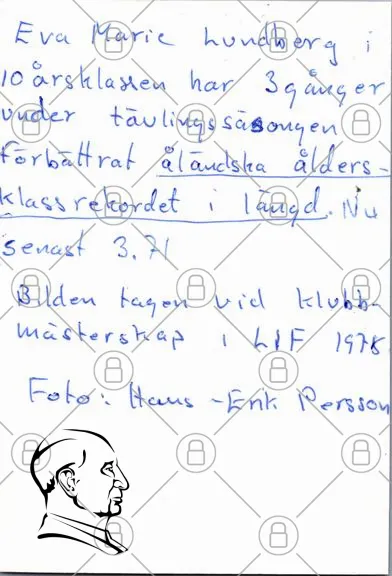 Eva Marie Lundberg i
10 årsklassen har 3 gånger
under tävlingssäsongen
förbättrat åländska ålders-
klassrekordet i längd. Nu
senast 3.71
Bilden tagen vid klubb-
mästerskap i LIF 1978.
Foto: Hans-Erik Persson